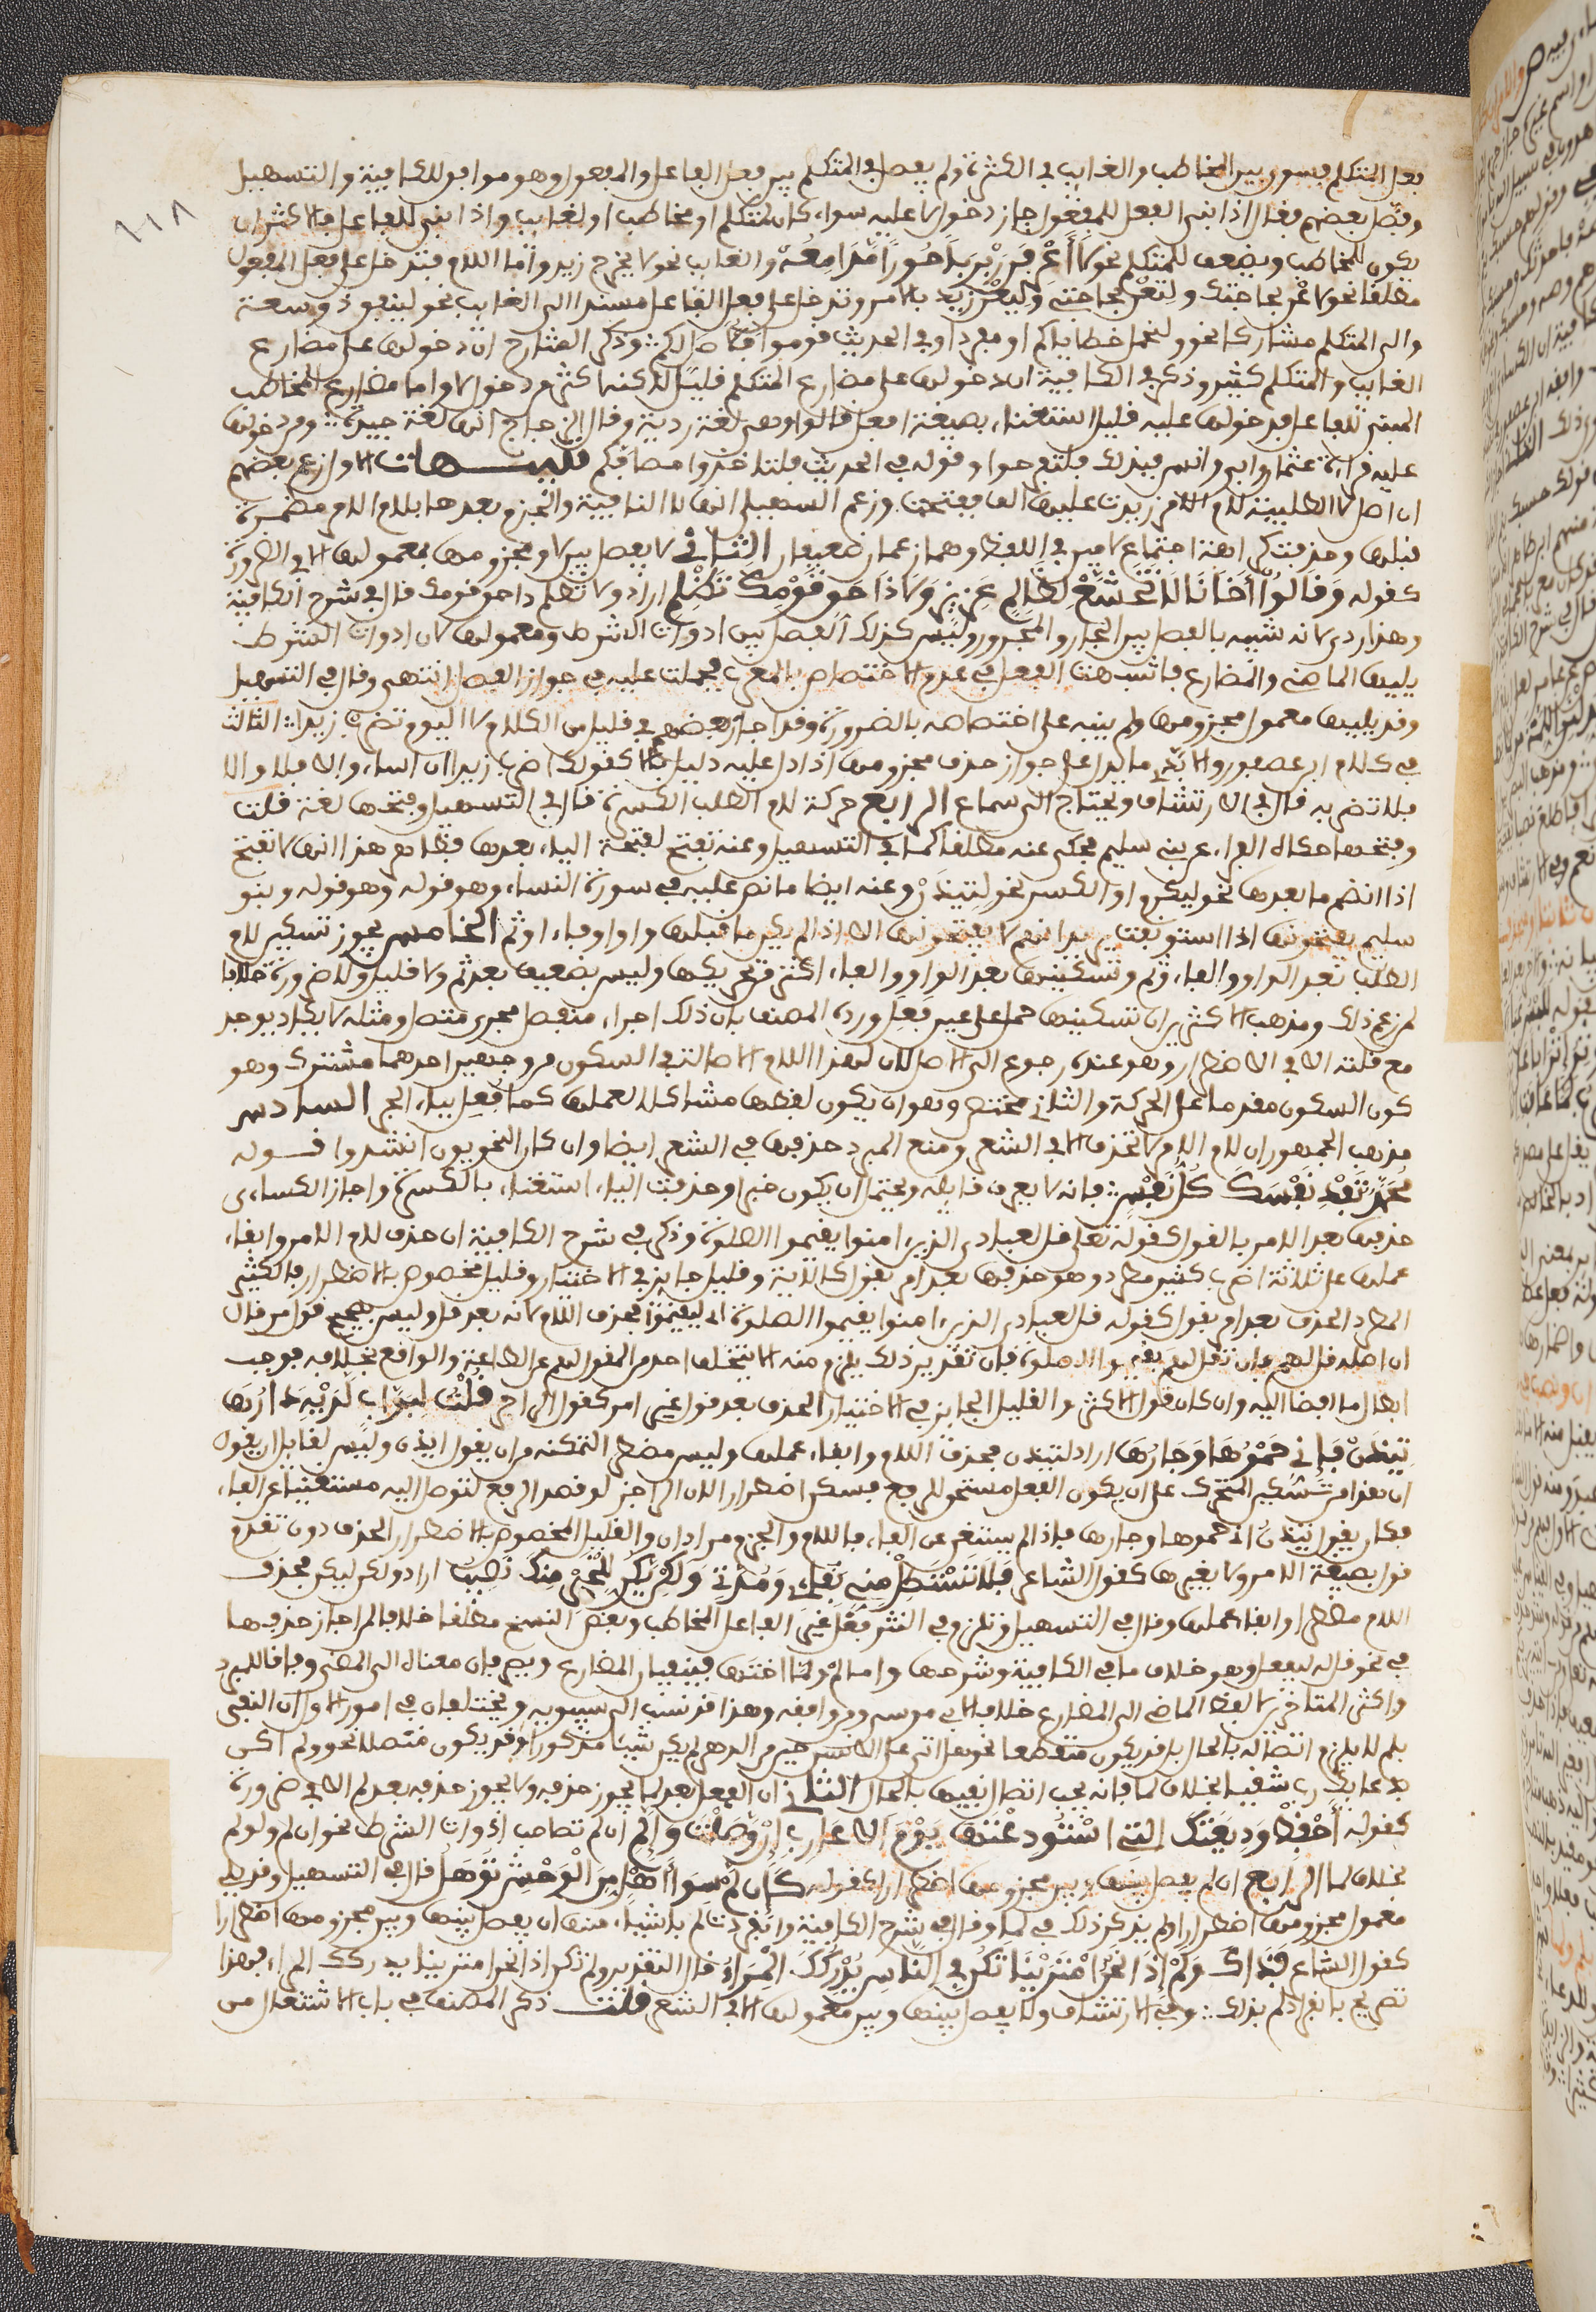 فعل المتكلم فيسوي بين المخاطب والغايب في الكثرة ولم يفصل في المتكلم بين فعل الفاعل والمفعول وهو موافق للكافية والتسهيل
وفصل بعضهم فقال اذا بني الفعل للمفعول جاز دخول لا عليه سواء كان لمتكلم او مخاطب او لغايب واذا بني للفاعل فالاكثر ان
يكون للمخاطب ويضعف للمتكلم نحو لا أعرفن ربربا حورا مدامعه والغايب نحو لا يخرج زيد واما اللام فتدخل على فعل المفعول
مطلقا نحو لا عن بحاجتك ولتعن بحاجتي وليعن زيد بالامر وتدخل على فعل الفاعل مسندا الى الغايب نحو لينفق ذو سعة
والى المتكلم مشاركا نحو ولنحمل خطاياكم او مفردا وفي الحديث قوموا فلاصل لكم وذكر الشارح ان دخولها على مضارع
الغايب والمتكلم كثير وذكر في الكافية ان دخولها على مضارع المتكلم قليل لكنه اكثر من دخول لا واما مضارع المخاطب
المبني للفاعل فدخولها عليه قليل استغناء بصيغة افعل قالوا وهي لغة ردية وقال الزجاجي انها لغة جيدة ومن دخولها
عليه قراءة عثمان وابي وانس فبذلك فلتفرحوا وقوله في الحديث فلتاخذوا مصافكم تنبيهات الاول زعم بعضهم
ان اصل لا الطلبية لام الامر زيدت عليها الف ففتحت وزعم السهيلي انها لا النافية والجزم بعدها بلام الامر مضمرة
قبلها وحذفت كراهة اجتماع لامين في اللفظ وهما زعمان ضعيفان الثاني لا يفصل بين لا ومجزومها بمعمولها الا في الضرورة
كقوله وقالوا أخانا لا تخشع لظالم عزيز ولا ذا حق قومك تظلم اراد ولا تظلم ذا حق قومك قال في شرح الكافية
وهذا ردي لانه شبيه بالفصل بين الجار والمجرور وليس كذلك الفصل بين ادوات الشرط ومعمولها لان ادوات الشرط
يليها الماضي والمضارع فاشبهت الفعل في عدم الاختصاص بالمعرب فحملت عليه في جواز الفصل انتهى وقال في التسهيل
وقد يليها معمول مجزومها ولم ينبه على اختصاصه بالضرورة وقد اجازه بعضهم في قليل من الكلام لا اليوم تضرب زيدا الثالث
في كلام ابن عصفور والابذي ما يدل على جواز حذف مجزومها اذا دل عليه دليل كقولك اضرب زيدا ان اساء والا فلا والا
فلا تضربه قال في الارتشاف ويحتاج الى سماع الرابع حركة لام الطلب الكسرة قال في التسهيل وفتحها لغة قلت
وفتحها حكاه الفراء عن بني سليم فحكى عنه مطلقا كما في التسهيل وعنه تفتح لفتحة الياء بعدها فظاهر هذا انها لا تفتح
اذا انضم ما بعدها نحو ليكرم او انكسر نحو لتيذن وعنه ايضا ما نص عليه في سورة النساء وهو قوله وهو قوله وبنو
سليم يفتحونها اذا استونفت يريد انهم لا يفتحونها الا اذا لم يكن ما قبلها واوا او فاء او ثم الخامس يجوز تسكين لام
الطلب بعد الواو والفاء وثم وتسكينها بعد الواو والفاء اكثر من تحريكها وليس بضعيف بعد ثم ولا قليل ولا ضرورة خلافا
لمن زعم ذلك ومذهب الاكثرين ان تسكينها حملا على عين فعل ورده المصنف بان ذلك اجراء منفصل مجرى متصل ومثله لا يكاد يوجد
مع قلته الا في الاضطرار وهو عنده رجوع الى الاصل لان لهذا اللام الاصالة في السكون من وجهين احدهما مشترك وهو
كون السكون مقدما على الحركة والثاني مختص وهو ان يكون لفظها مشاكلا لعملها كما فعل بباء الجر السادس
مذهب الجمهور ان لام الامر لا تحذف الا في الشعر ومنع المبرد حذفها في الشعر ايضا وان كان النحويون انشدوا قوله
محمد تفد نفسك كل نفس فانه لا يعرف قايله ويحتمل ان يكون خبرا وحذفت الياء استغناء بالكسرة واجاز الكساءي
حذفها بعد الامر بالقول كقوله تعلى قل لعبادي الذين امنوا يقيموا الصلوة وذكر في شرح الكافية ان حذف لام الامر وابقاء
عملها على ثلاثة اضرب كثير مطرد وهو حذفها بعد امر بقول كالاية وقليل جايز في الاختيار وقليل مخصوص بالاضطرار فالكثير
المطرد الحذف بعد امر بقول كقوله قل لعبادي الذين امنوا يقيموا الصلوة اي ليقيموا فحذف اللام لانه بعد قل وليس بصحيح قول من قال
ان اصله قل لهم فان تقل لهم يقيموا الصلوة فان تقدير ذلك يلزم منه الا يتخلف احد من المقول لهم عن الطاعة والواقع بخلافه فوجب
ابطال ما افضى اليه وان كان قول الاكثر والقليل الجايز في الاختيار الحذف بعد قول غير امر كقول الراجز قلت لبواب لديه دارها
تيذن فإني حموها وجارها اراد لتيذن فحذف اللام وابقاء عملها وليس مضطرا لتمكنه من ان يقول ايذن وليس لقايل ان يقول
ان هذا من تسكين المتحرك على ان يكون الفعل مستحق للرفع فسكن اضطرارا لان الراجز لو قصد الرفع لتوصل اليه مستغنيا عن الفاء
فكان يقول تيذن اني حموها وجارها فاذا لم يستغن عن الفاء فاللام والجزم مرادان والقليل المخصوص بالاضطرار الحذف دون تقدم
قول بصيغة الامر ولا بغيرها كقول الشاعر فلا تستطل مني بقاءي ومدتي ولكن يكن للخير منك نصيب اراد ولكن ليكن فحذف
اللام مضطرا وابقاء عملها وقال في التسهيل وتلزم في النثر فعل غير الفاعل المخاطب وبعض النسخ مطلقا خلافا لمن اجاز حذفها
في نحو قل له ليفعل وهو خلاف ما في الكافية وشرحها واما لم ولما اختها فينفيان المضارع ويصرفان معناه الى المضي وفاقا للمبرد
واكثر المتاخرين لا لفظ الماضي الى المضارع خلافا لابي موسى ومن وافقه وهذا قد نسب الى سيبويه ويختلفان في امور الاول ان النفي
بلم لا يلزم اتصاله بالحال بل قد يكون منقطعا نحو هل اتى على الانسان حين من الدهر لم يكن شيئا مذكورا وقد يكون متصلا نحو ولم اكن
بدعايك رب شقيا بخلاف لما فانه يجب اتصال نفيها بالحال الثاني ان الفعل بعد لما يجوز حذفه ولا يجوز حذفه بعد لم الا في ضرورة
كقوله أحفظ وديعتك التي استودعتها يوم الاعازب ان وصلت وإن لم ان لم تصاحب ادوات الشرط نحو ان لم ولو لم
بخلاف لما الرابع ان لم يفصل بينها وبين مجزومها اضطرارا كقوله كأن لم سوى أهل من الوحش توهل قال في التسهيل وقد يلي
معمول مجزومها اضطرارا ولم يذكر ذلك في لما وقال في شرح الكافية وانفردت لم باشياء منها ان يفصل بينها وبين مجزومها اضطرارا
كقول الشاعر فذاك ولم إذا نحن امترينا تكن في الناس يدركك المراء قال التقدير ولم تكن اذا نحن امترينا يدركك المراء فهذا
تصريح بانفراد لم بذلك وفي الارتشاف ولا يفصل بينها وبين معمولها الا في الشعر قلت ذكر المصنف في باب الاشتغال من